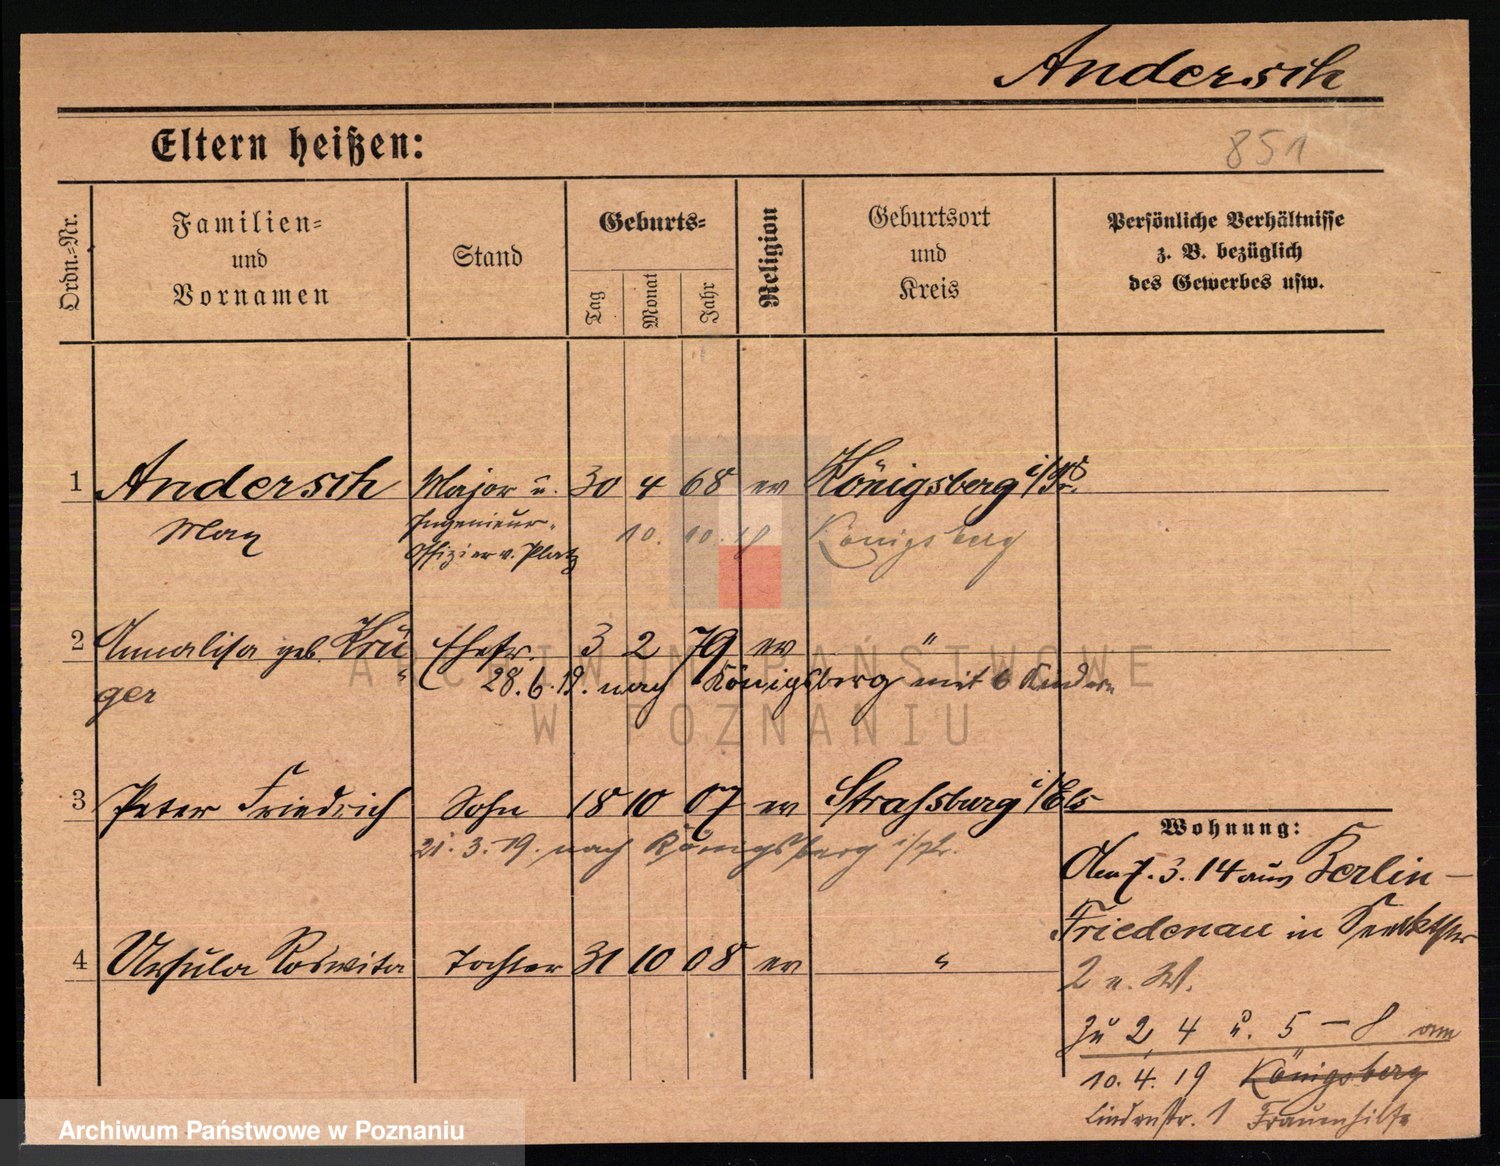 Andersch
Eltern heißen:
851
Ordn.-Nr.
Familien-
und
Vornamen
Stand
Geburts-
Tag
Monat
Jahr
Religion
Geburtsort
und
Kreis
Persönliche Verhältnisse
z. B. bezüglich
des Gewerbes usw.
1 Andersch Major u. 30 4 68 ev Königsberg i/Pr.
Max Ingenieur-
Offizier v. Platz
10. 10. 18 Königsberg
2 Annalisa geb. Krü- Ehefr. 3 2 79 ev "
ger 28. 6. 19. nach Königsberg mit 6 Kindern
3 Peter Friedrich Sohn 18 10 07 ev Strassburg i/Els
21. 3. 19. nach Königsberg i/Pr.
4 Ursula Roswita Tochter 31 10 08 ev "
Wohnung:
Am 7. 3. 14 aus Berlin-
Friedenau in
2 n. W.
Zu 2, 4 u. 5 - 8 am
10. 4. 19 Königsberg
Lindenstr. 1 Frauenhilfe
ARCHIWUM PAŃSTWOWE
W POZNANIU
Archiwum Państwowe w Poznaniu